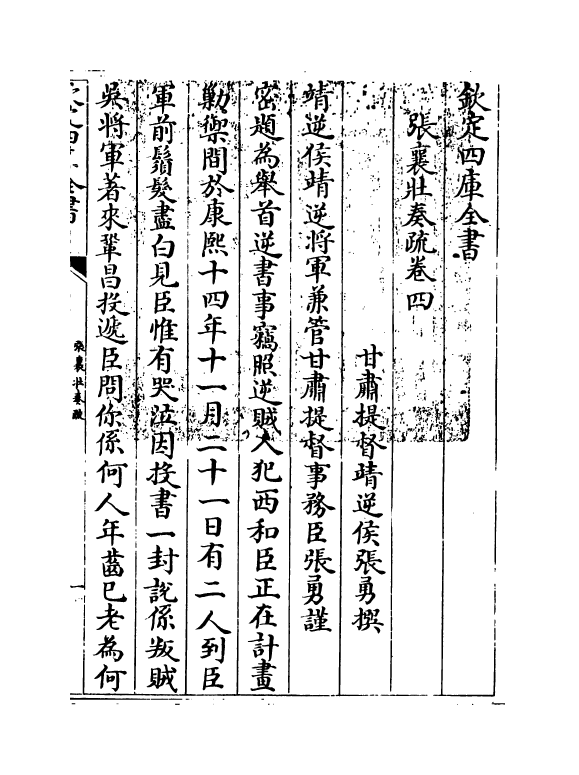 欽定四庫全書
張襄壯奏疏卷四
甘肅提督靖逆侯張勇撰
靖逆侯靖逆將軍兼管甘肅提督事務臣張勇謹
密題為舉首逆書事竊照逆賊入犯西和臣正在計畫
勦禦間於康熙十四年十一月二十一日有二人到臣
軍前鬚髮盡白見臣惟有哭泣因投書一封說係叛賊
吳將軍著來鞏昌投遞臣問你係何人年齒已老為何
欽定四庫全書
張襄壯奏疏
一